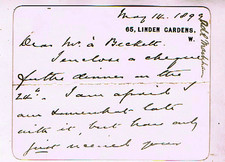 May 14. 189
65, LINDEN GARDENS,
W.
Dear Mr. à Beckett.
I enclose a cheque
for the dinner on the
24th. I am afraid I
am somewhat late
with it, but have only
just received your